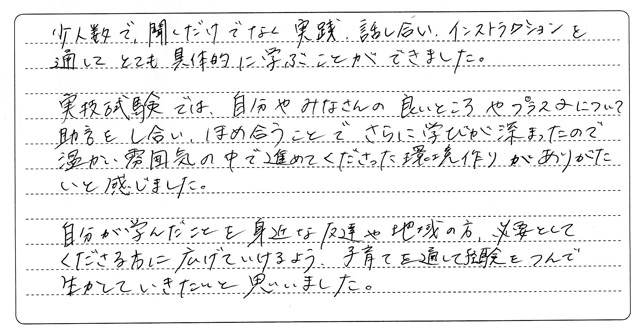 少人数で、聞くだけでなく 実践、話し合い、インストラクションを
通して とても 具体的に 学ぶことが できました。
実技試験では、自分や みなさんの 良いところ や プラスαについて
助言を し合い、ほめ合うことで さらに 学びが 深まったので
温かい 雰囲気の 中で 進めてくださった 環境作り が ありがた
いと 感じました。
自分が 学んだことを 身近な 友達や 地域の方、必要として
くださる方に 広げていけるよう、子育てを通して経験を つんで
生かして いきたいと 思いました。